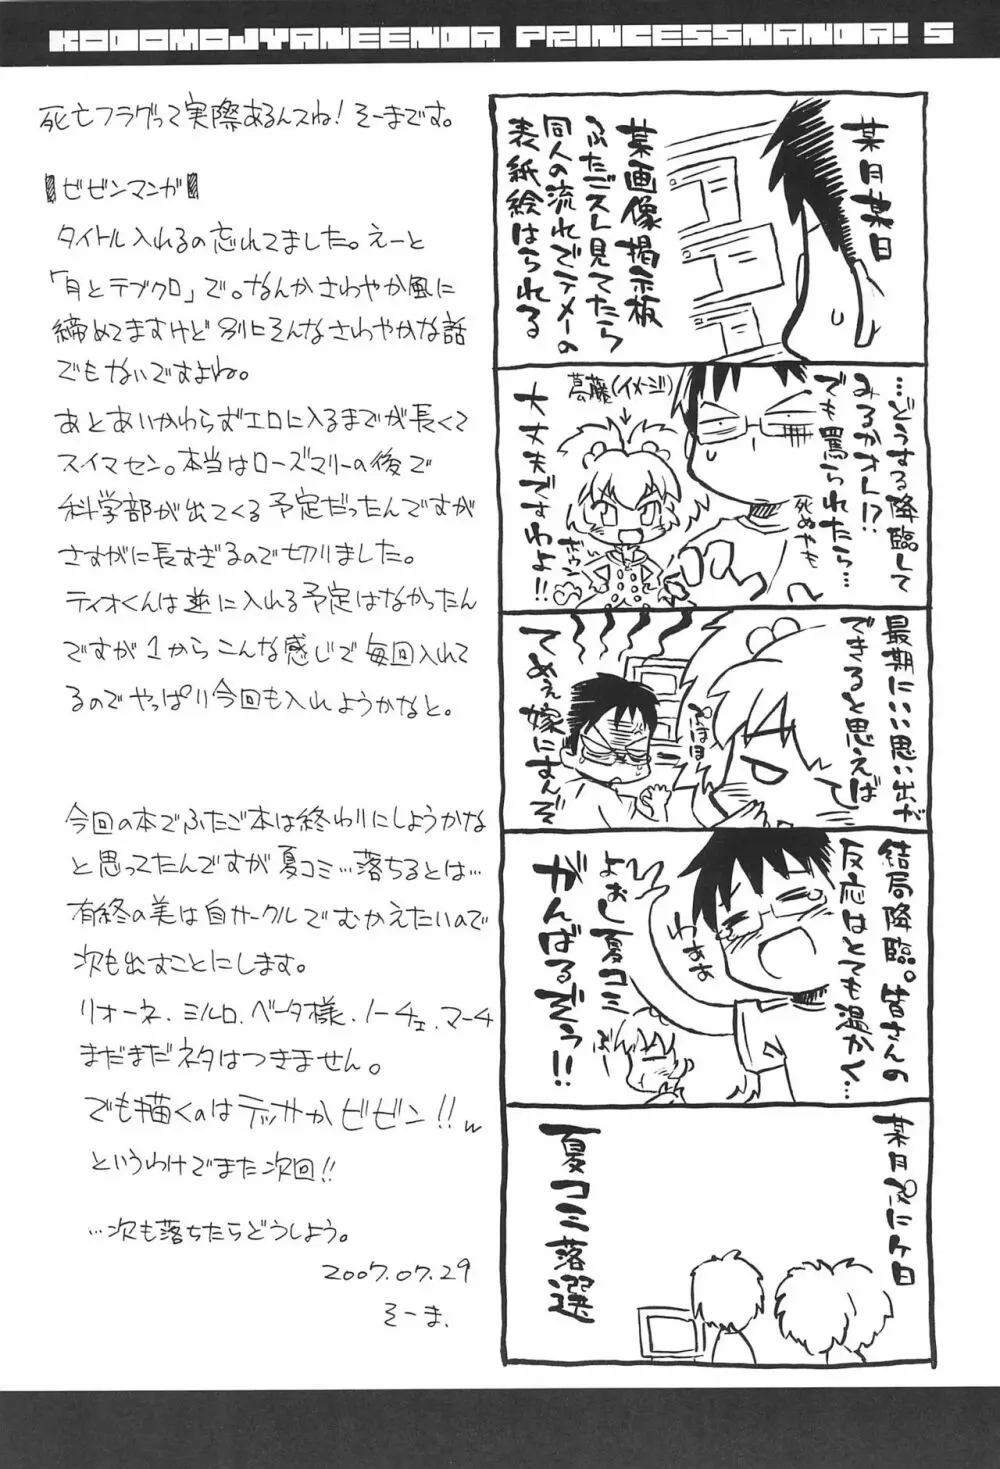 KODOMOJYANEENDA PRINCESSNANDA! 5
死亡フラグって実際あるんスね！そーまです。
【ビビンマンガ】
タイトル入れるの忘れてました。えーと
「月とテブクロ」で。なんかさわやか風に
締めてますけど別にそんなさわやかな話
でもないですよね。
あとあいかわらずエロに入るまでが長くて
スイマセン。本当はローズマリーの後で
科学部が出てくる予定だったんですが
さすがに長すぎるので切りました。
ティオくんは並に入れる予定はなかったん
ですが1からこんな感じで毎回入れて
るのでやっぱり今回も入れようかなと。
今回の本でふたご本は終わりにしようかな
と思ってたんですが夏コミ…落ちるとは…
有終の美は自サークルでむかえたいので
次も出すことにします。
リオーネ、ミルロ、ベータ様、ノーチェ、マーチ
まだまだネタはつきません。
でも描くのはテッサかビビン!!w
というわけでまた次回!!
…次も落ちたらどうしよう。
2007.07.29
そーま.
某月某日
某画像掲示板
ふたごスレ見てたら
同人の流れでテメーの
表紙絵はられる
…どうする降臨して
みるかオレ!?
でも罵られたら…
死ぬやも
葛藤(イメージ)
大丈夫ですわよ!!
最期にいい思い出が
できると思えば
てめぇ嫁にすんぞ
結局降臨。皆さんの
反応はとても温かく…
わぁぁ
よぉし夏コミ
がんばるぞぅ!!
某月
夏コミ落選